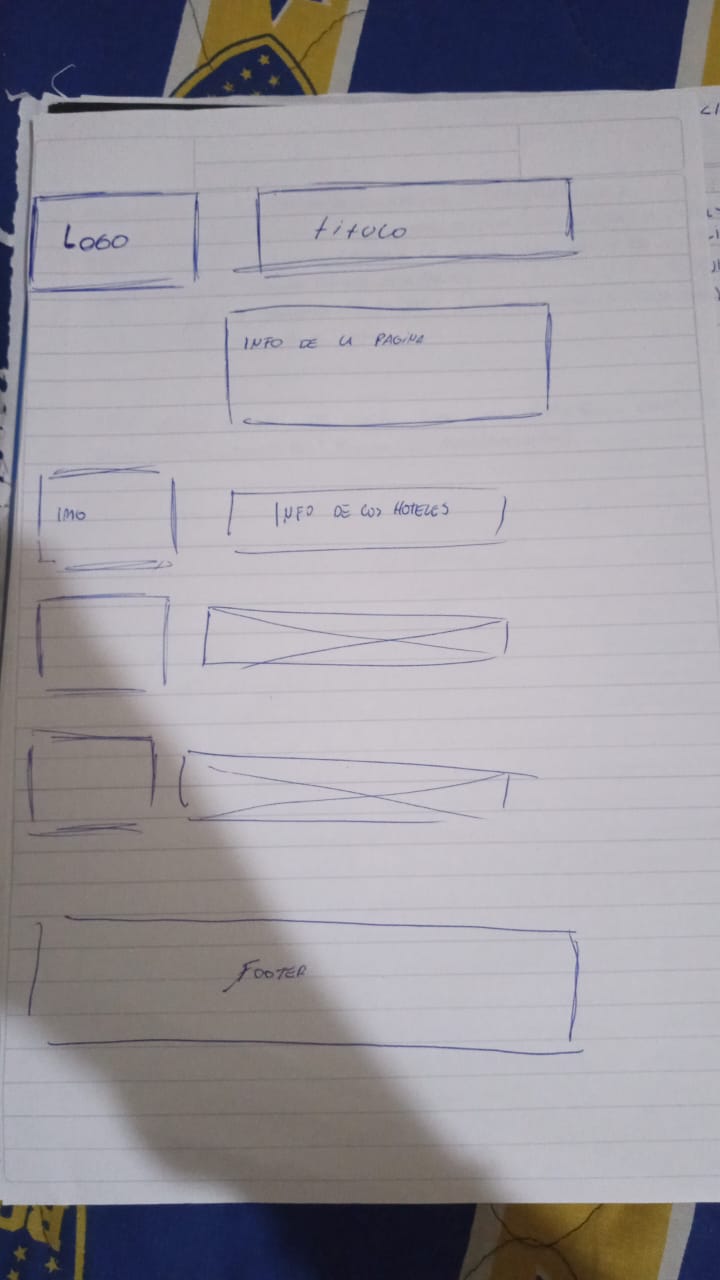 LOGO
titulo
INFO DE LA PAGINA
IMG
INFO DE LOS HOTELES
FOOTER